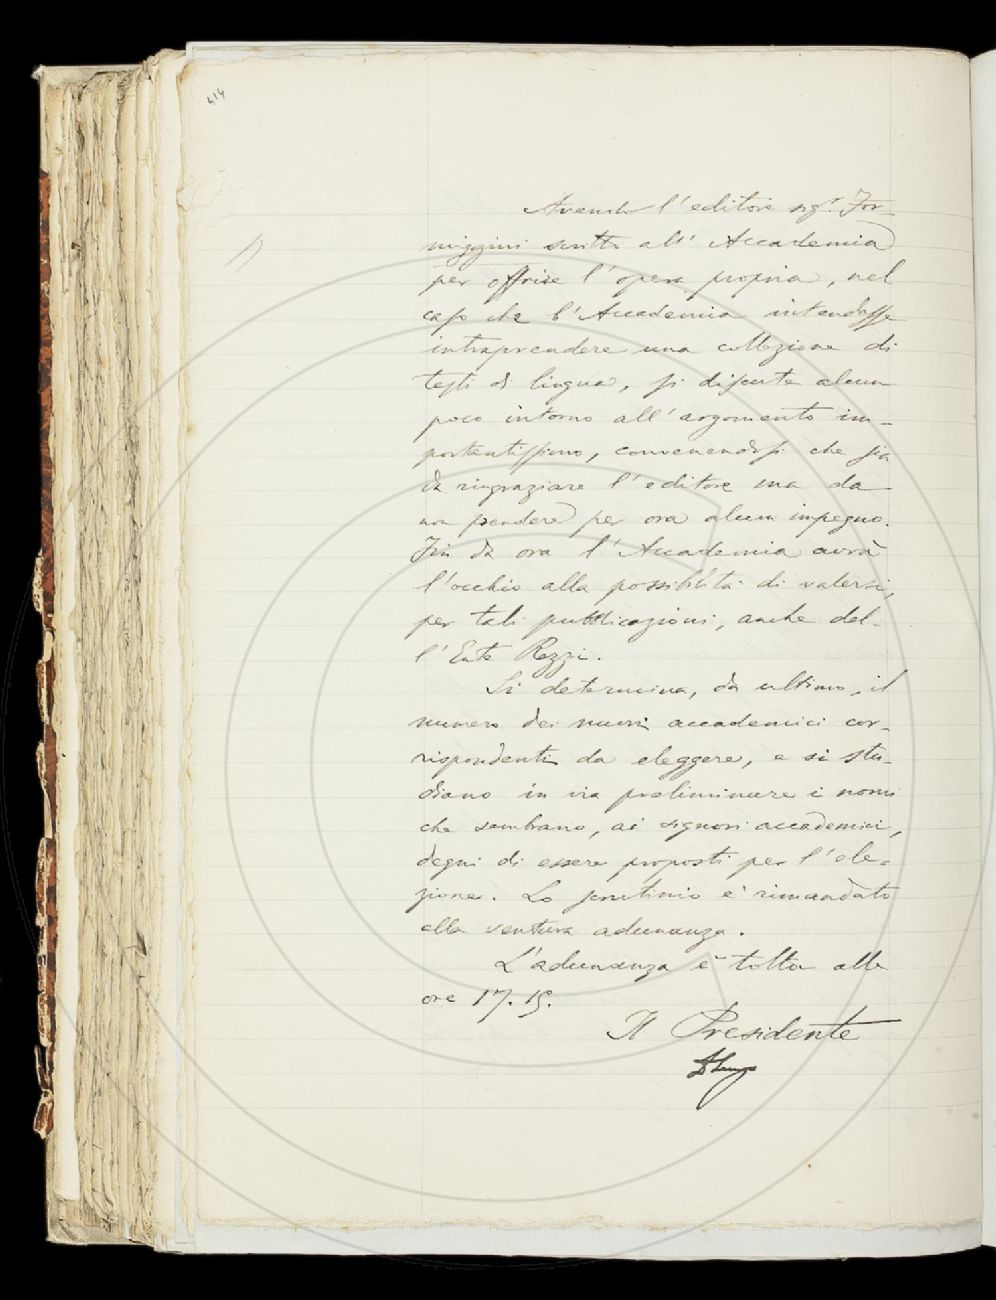 414
Avendo l'editore sig.r For-
miggini scritto all' Accademia
per offrire l'opera propria, nel
caso che l'Accademia intendesse
intraprendere una collezione di
testi di lingua, si discute alcun
poco intorno all'argomento im-
portantissimo, convenendosi che sia
da ringraziare l'editore ma da
non prendere per ora alcun impegno.
Fin da ora l'Accademia avrà
l'occhio alla possibilità di valersi,
per tali pubblicazioni, anche del-
l'Ente Rezzi.
Si determina, da ultimo, il
numero dei nuovi accademici cor-
rispondenti da eleggere, e si stu-
diano in via preliminare i nomi
che sembrano, ai signori accademici,
degni di essere proposti per l'ele-
zione. Lo scrutinio è rimandato
alla ventura adunanza.
L'adunanza è tolta alle
ore 17.15.
Il Presidente